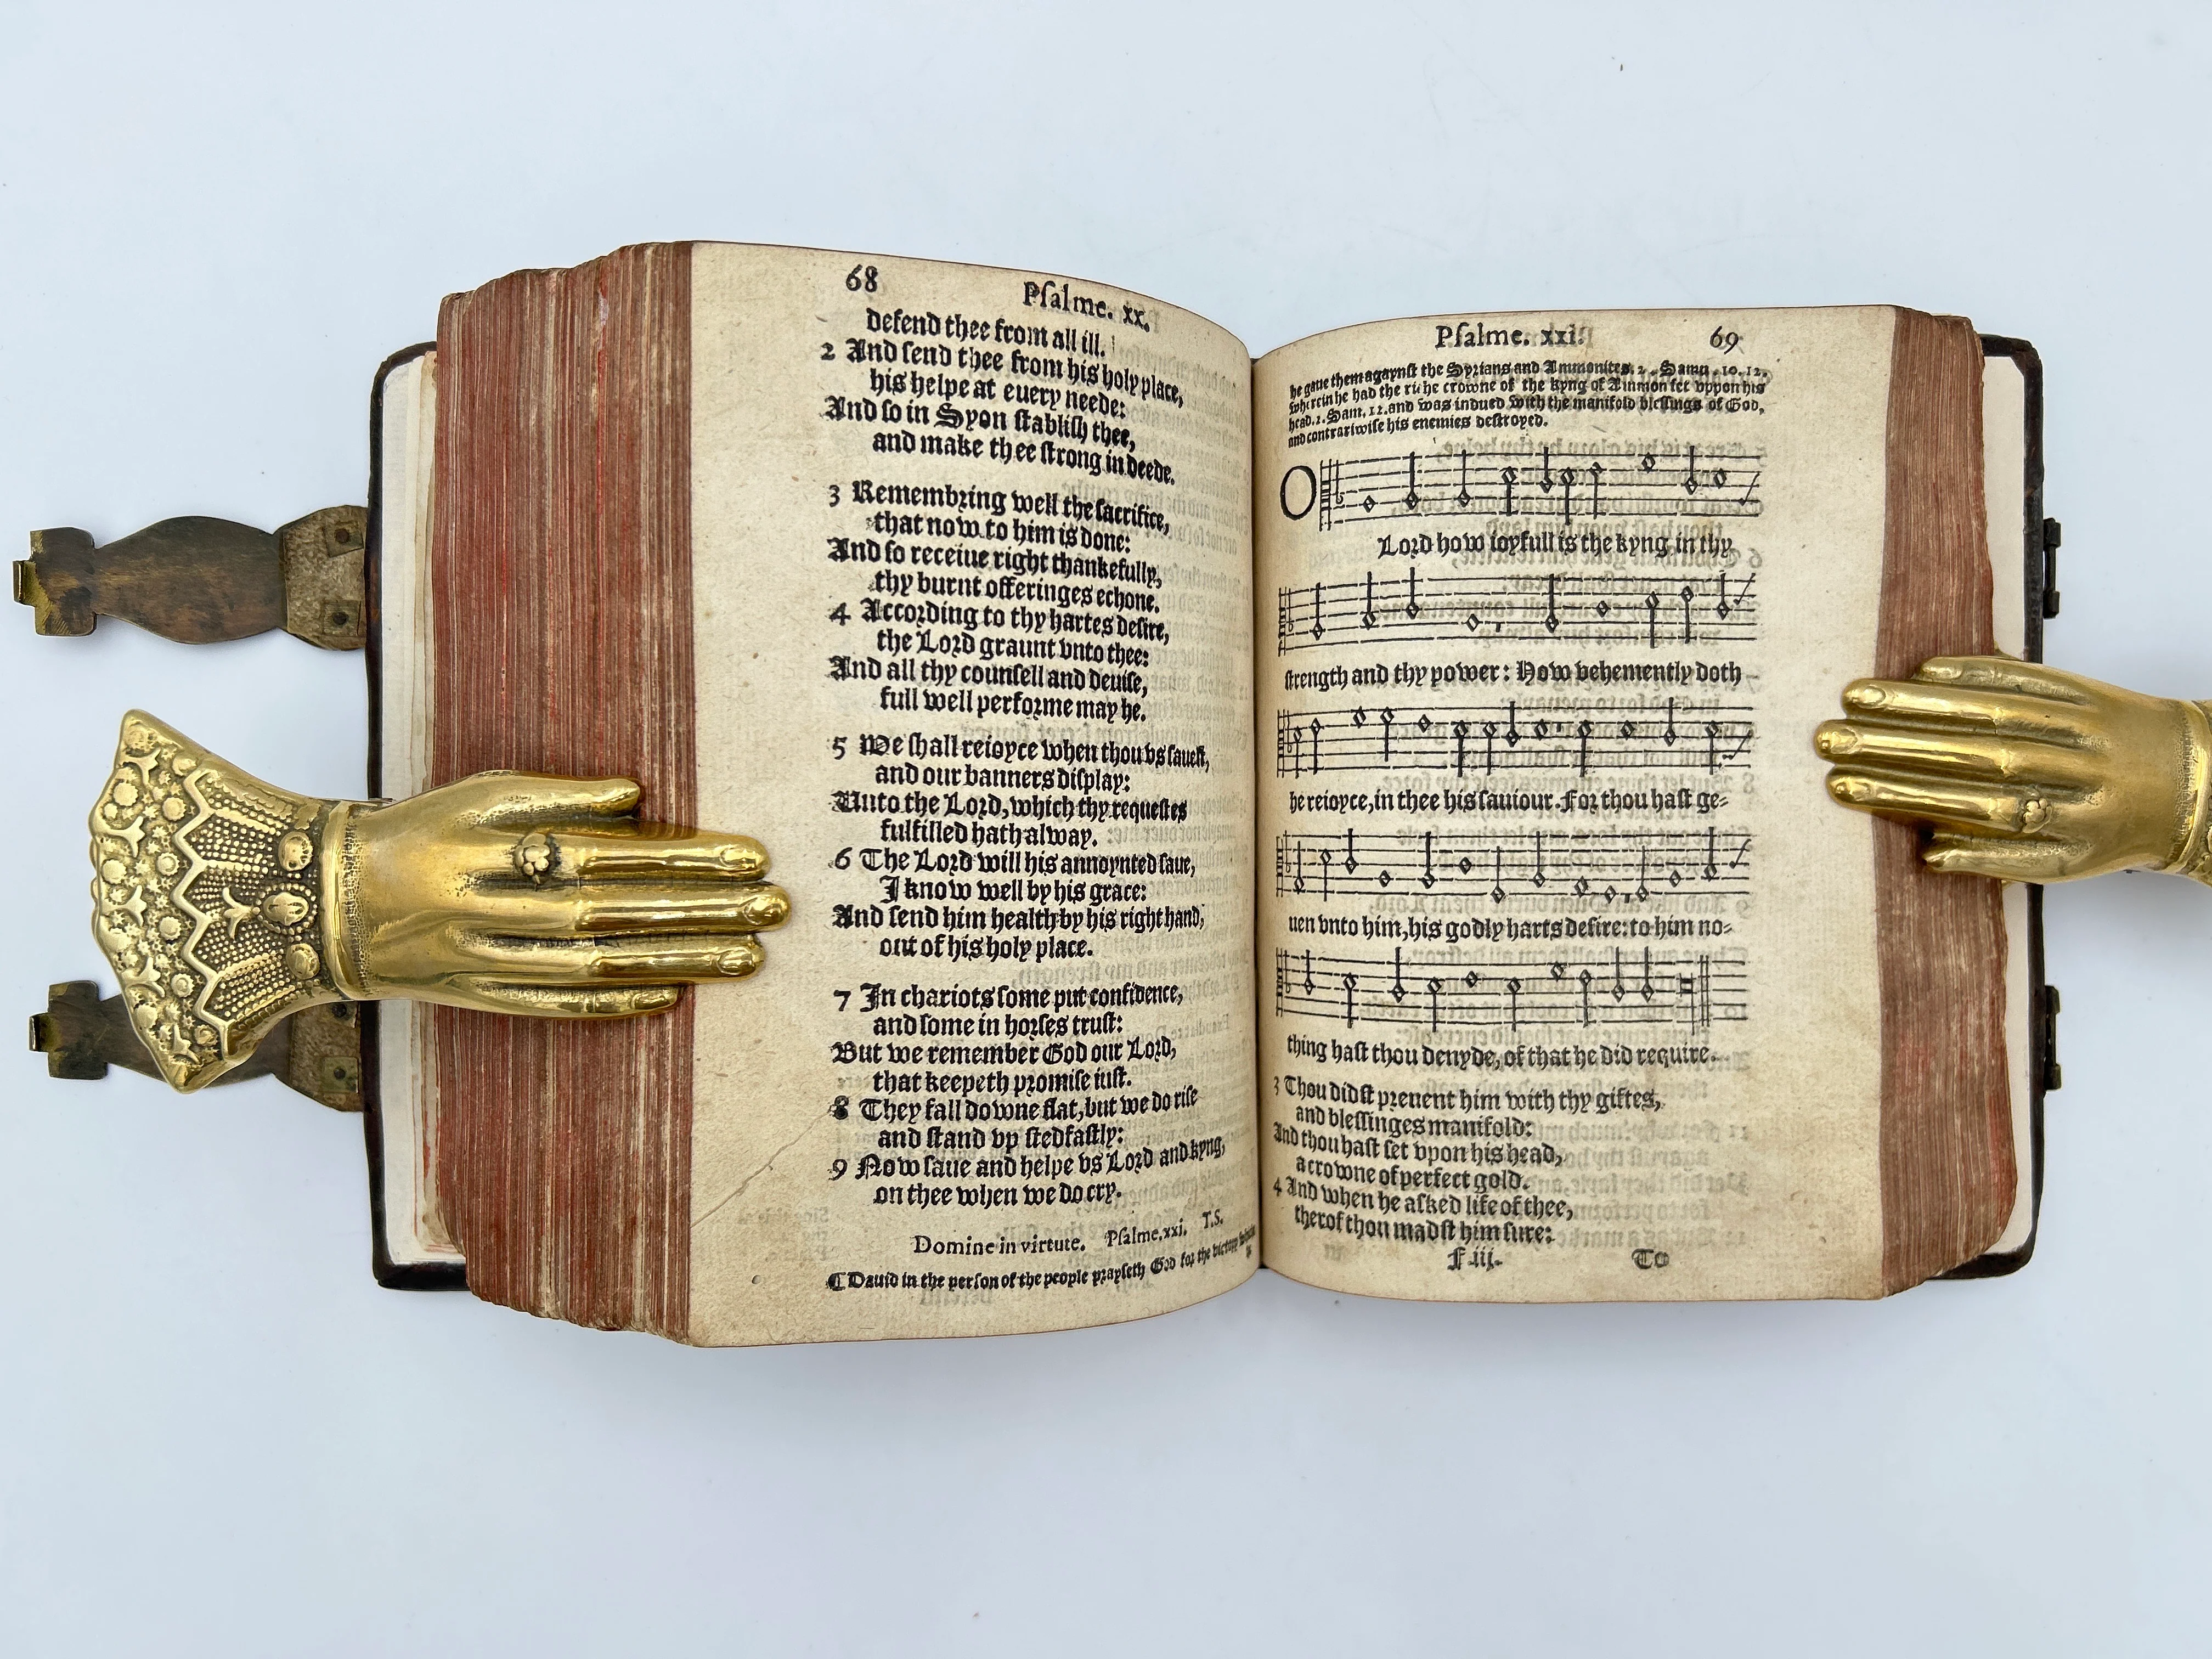 68
Pſalme. xx.
defend thee from all ill.
2 And ſend thee from his holy place,
his helpe at euery neede:
And ſo in Syon ſtabliſh thee,
and make thee ſtrong in deede.
3 Remembring well the ſacrifice,
that now to him is done:
And ſo receiue right thankefully,
thy burnt offeringes echone.
4 According to thy hartes deſire,
the Lord graunt vnto thee:
And all thy counſell and deuiſe,
full well performe may he.
5 We ſhall reioyce when thou vs ſaueſt,
and our banners diſplay:
Unto the Lord, which thy requeſtes
fulfilled hath alway.
6 The Lord will his annoynted ſaue,
I know well by his grace:
And ſend him health by his right hand,
out of his holy place.
7 In chariots ſome put confidence,
and ſome in horſes truſt:
But we remember God our Lord,
that keepeth promiſe iuſt.
8 They fall downe flat, but we do riſe
and ſtand vp ſtedfaſtly:
9 Now ſaue and helpe vs Lord and kyng,
on thee when we do cry.
Domine in virtute. Pſalme. xxi. T.S.
¶ Dauid in the perſon of the people prayſeth God for the victory
Pſalme. xxi. 69
he gaue them agaynſt the Syrians and Ammonites. 2. Samu. 10. 12.
wherein he had the riche crowne of the kyng of Ammon ſet vppon his
head. 2. Sam. 12. and was indued with the manifold bleſſings of God,
and contrariwiſe his enemies deſtroyed.
O
Lord how ioyfull is the kyng in thy
ſtrength and thy power: How vehemently doth
he reioyce, in thee his ſauiour. For thou haſt ge-
uen vnto him, his godly harts deſire: to him no-
thing haſt thou denyde, of that he did require.
3 Thou didſt preuent him with thy giftes,
and bleſſinges manifold:
And thou haſt ſet vpon his head,
a crowne of perfect gold.
4 And when he aſked life of thee,
therof thou madſt him ſure:
F.iii. To